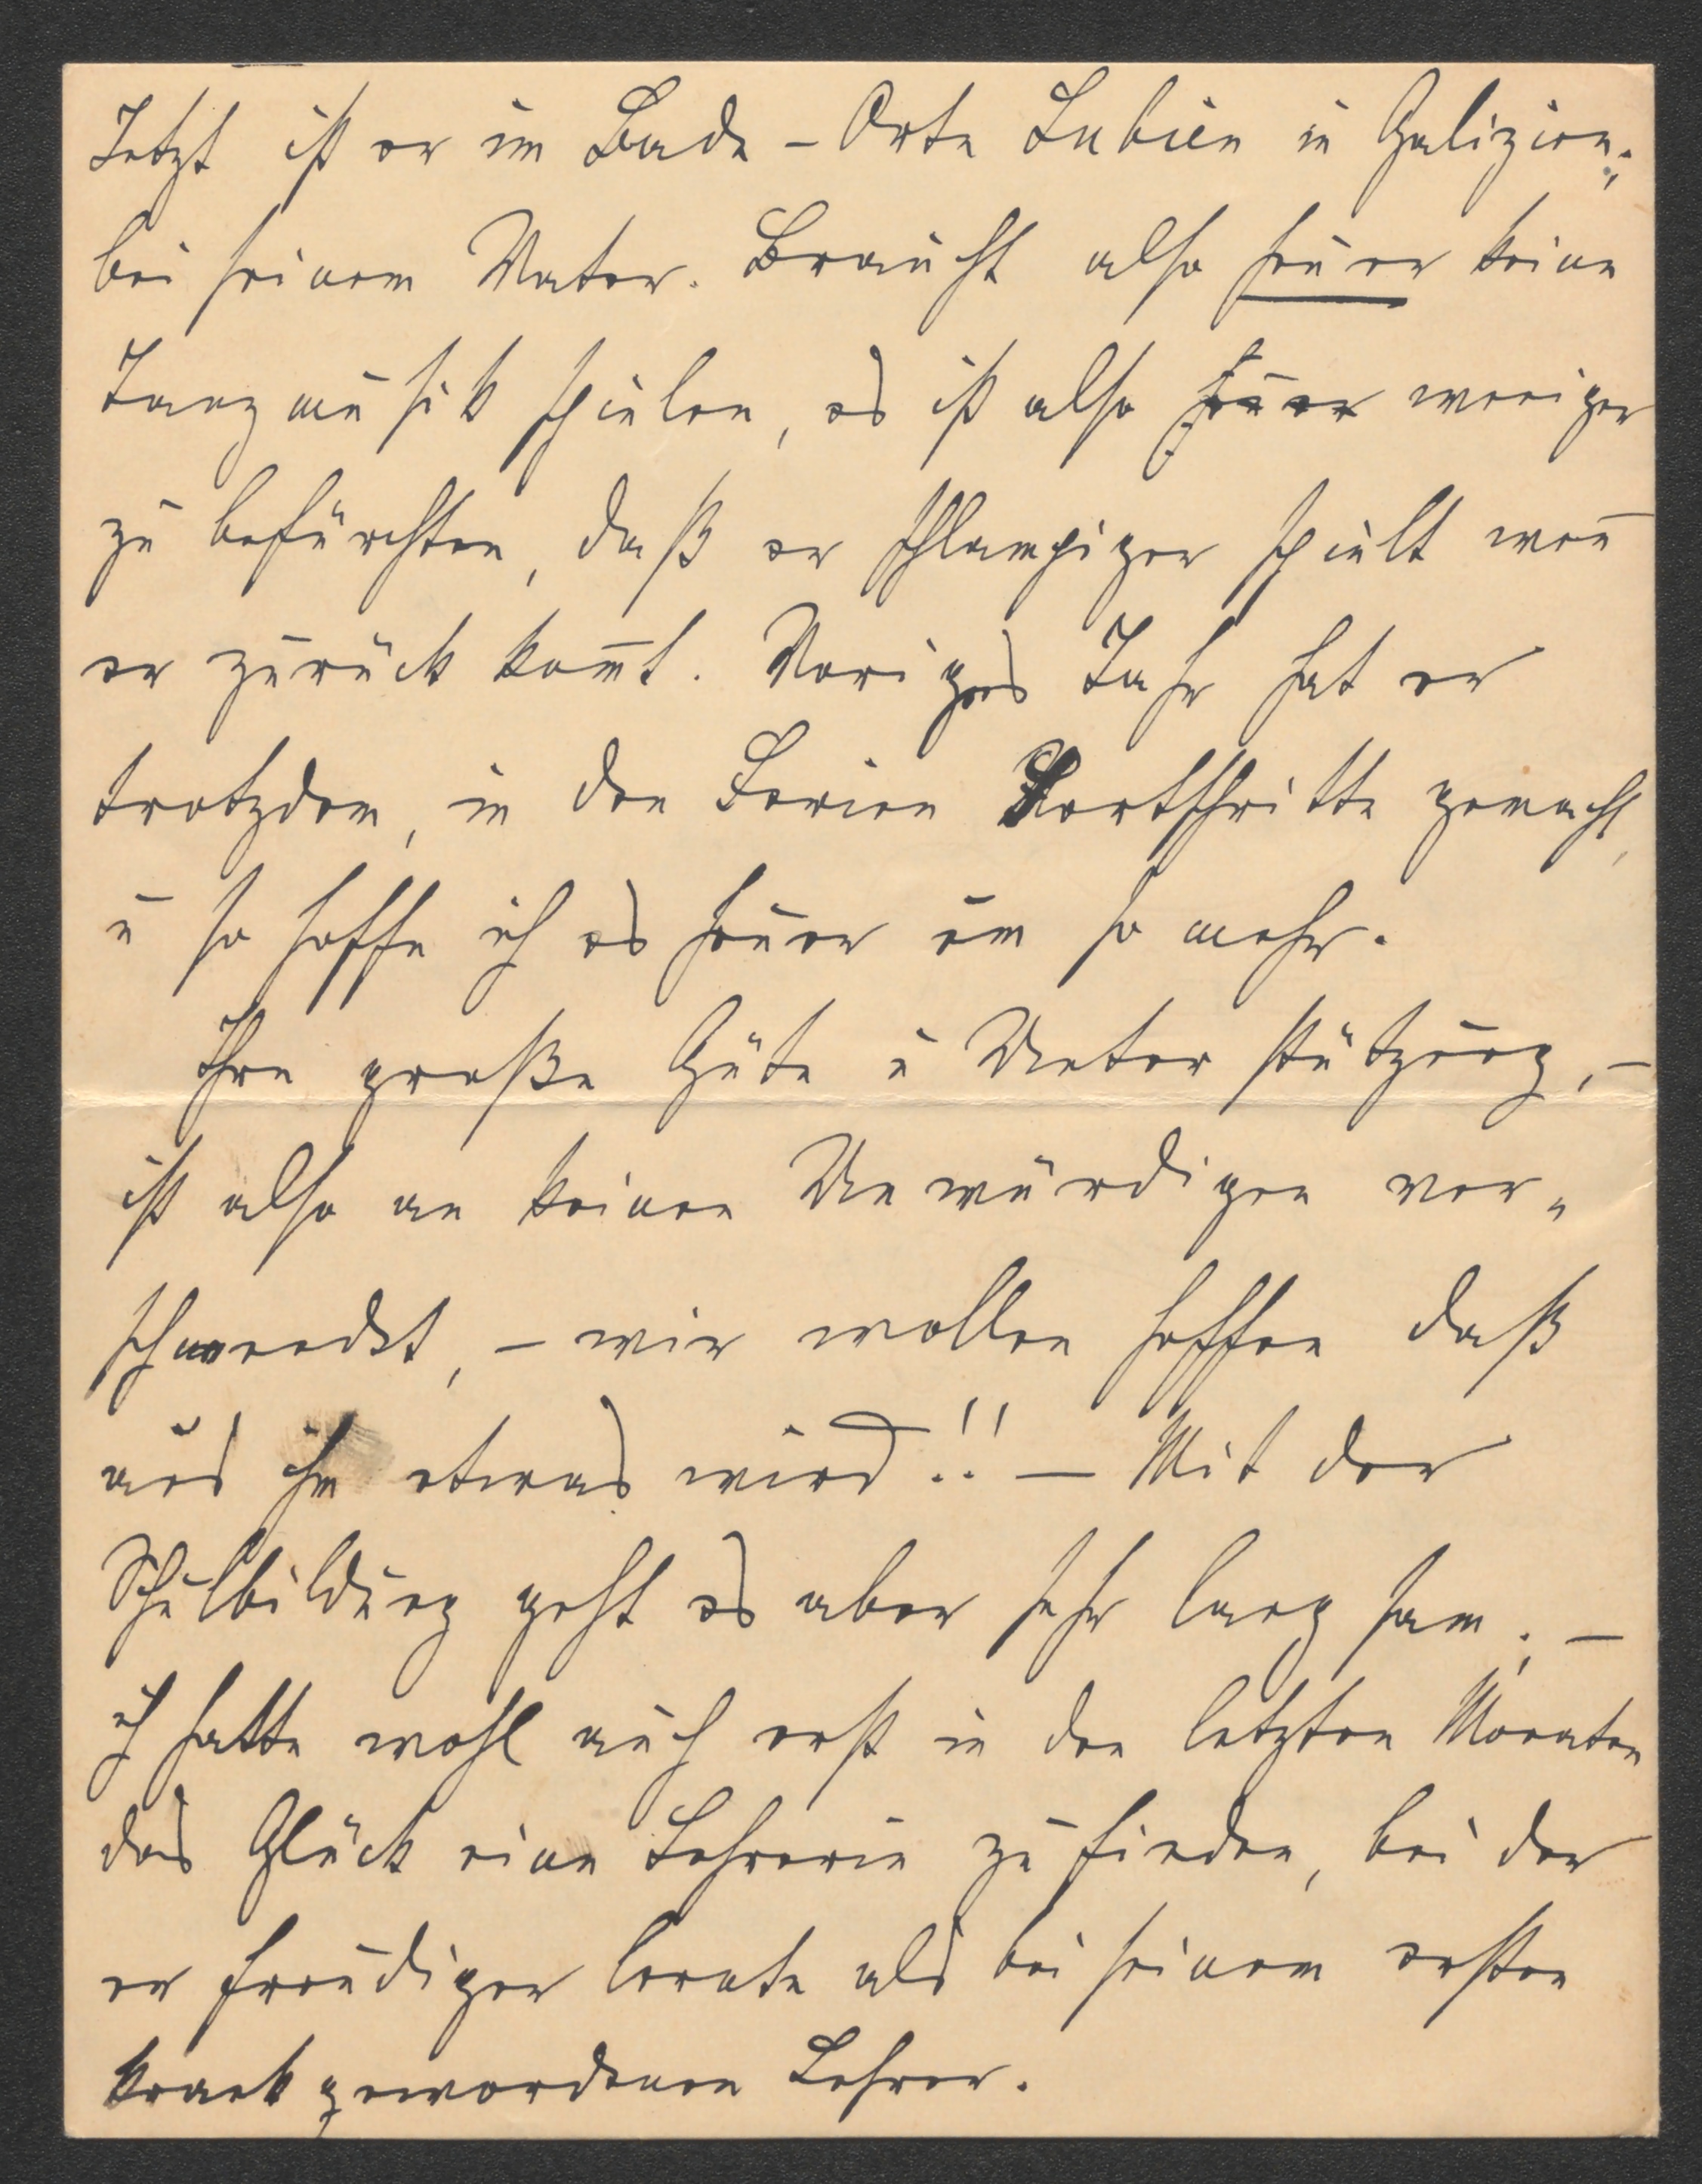 Jetzt ist er im Bade-Orte Lubien in Galizien;
bei seinem Vater. Braucht also heuer keine
Tanzmusik spielen, es ist also heuer weniger
zu befürchten, daß er schlampiger spielt wen̄
er zurück kom̄t. Voriges Jahr hat er
trotzdem, in den Ferien Fortschritte gemacht,
u so hoffe ich es heuer um so mehr.
Ihre große Güte u Unterstützung, –
ist also an keinen Unwürdigen ver„
schwendet, – wir wollen hoffen daß
aus ihm etwas wird!! – Mit der
Schulbildung geht es aber sehr langsam; –
ich hatte wohl auch erst in den letzten Monaten
das Glück eine Lehrerin zu finden, bei der
er freudiger lernte als bei seinem ersten
krank gewordenen Lehrer.